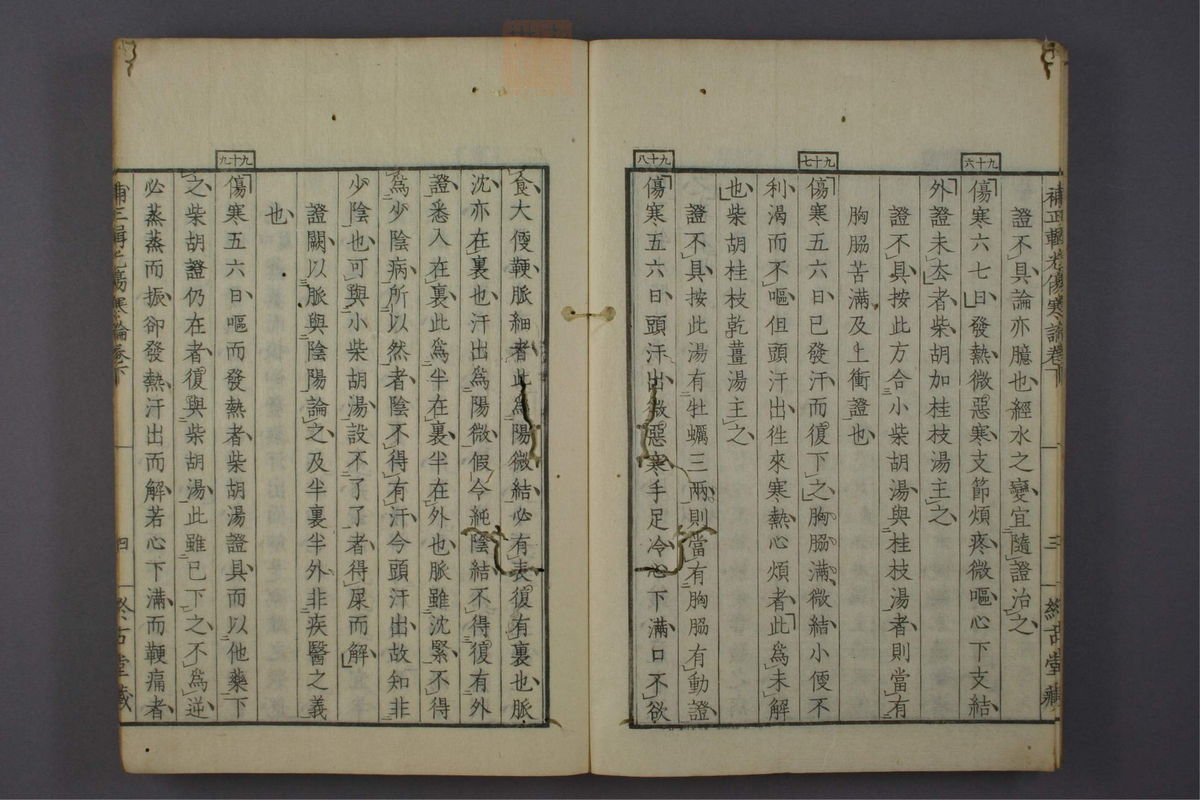 證不具論亦臆也經水之變宜隨證治之
九十六
傷寒六七日發熱微惡寒支節煩疼微嘔心下支結
外證未去者柴胡加桂枝湯主之
證不具按此方合小柴胡湯與桂枝湯者則當有
胸脇苦滿及上衝證也
九十七
傷寒五六日已發汗而復下之胸脇滿微結小便不
利渴而不嘔但頭汗出往來寒熱心煩者此爲未解
也柴胡桂枝乾薑湯主之
證不具按此湯有牡蠣三兩則當有胸脇有動證
九十八
傷寒五六日頭汗出微惡寒手足冷心下滿口不欲
食大便鞕脈細者此爲陽微結必有表復有裏也脈
沈亦在裏也汗出爲陽微假令純陰結不得復有外
證悉入在裏此爲半在裏半在外也脈雖沈緊不得
爲少陰病所以然者陰不得有汗今頭汗出故知非
少陰也可與小柴胡湯設不了了者得屎而解
證闕以脈與陰陽論之及半裏半外非疾醫之義
也
九十九
傷寒五六日嘔而發熱者柴胡湯證具而以他藥下
之柴胡證仍在者復與柴胡湯此雖已下之不爲逆
必蒸蒸而振卻發熱汗出而解若心下滿而鞕痛者
傷寒論卷下
三
堂藏
四
堂藏